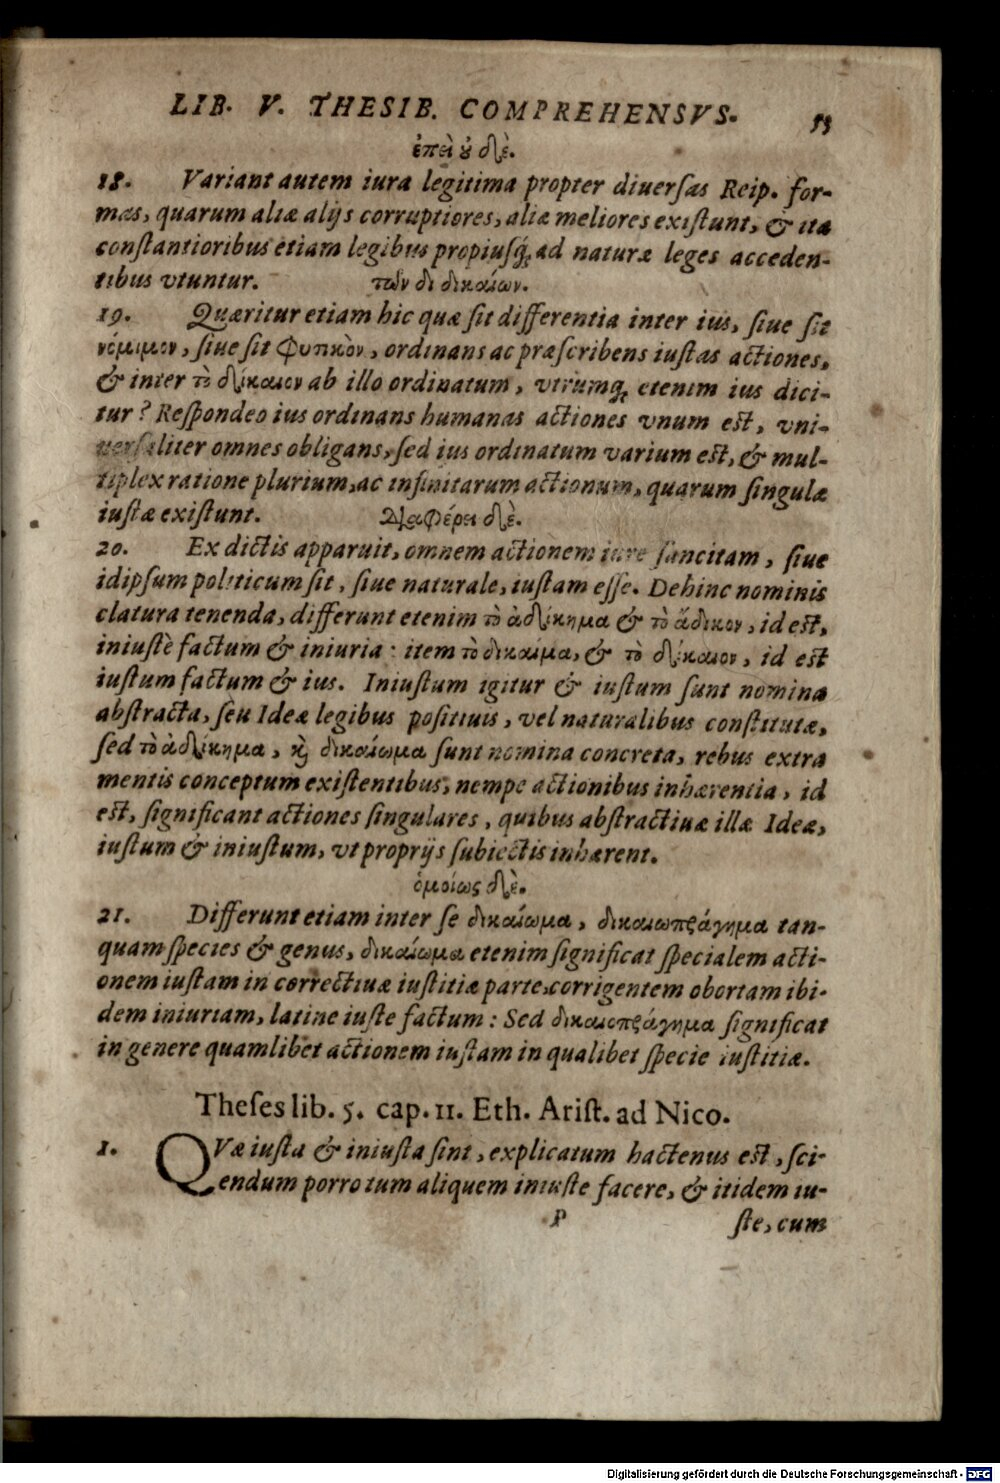 LIB. V. THESIB. COMPREHENSVS. 53
ἐπεὶ ȣ δὲ.
18. Variant autem iura legitima propter diuerſas Reip. for-
mas, quarum aliæ alijs corruptiores, aliæ meliores exiſtunt, & ita
conſtantioribus etiam legibus propiuſq́; ad naturæ leges acceden-
tibus vtuntur. τῶν δι δικαίων.
19. Quæritur etiam hic quæ ſit differentia inter ius, ſiue ſit
νόμιμον, ſiue ſit φυσικὸν, ordinans ac præſcribens iuſtas actiones,
& inter τὸ δίκαιον ab illo ordinatum, vtrumq; etenim ius dici-
tur? Reſpondeo ius ordinans humanas actiones vnum eſt, vni-
uerſaliter omnes obligans, ſed ius ordinatum varium eſt, & mul-
tiplex ratione plurium, ac infinitarum actionum, quarum ſingulæ
iuſtæ exiſtunt. Διαφέρει δὲ.
20. Ex dictis apparuit, omnem actionem iure ſancitam, ſiue
idipſum politicum ſit, ſiue naturale, iuſtam eſſe. Dehinc nominis
clatura tenenda, differunt etenim τὸ ἀδίκημα & τὸ ἄδικον, id eſt,
iniuſtè factum & iniuria: item τὸ δικαίμα, & τὸ δίκαιον, id est
iuſtum factum & ius. Iniuſtum igitur & iuſtum ſunt nomina
abſtracta, ſeu Ideæ legibus poſitiuis, vel naturalibus conſtitutæ,
ſed τὸ ἀδίκημα, κỳ δικαίωμα ſunt nomina concreta, rebus extra
mentis conceptum exiſtentibus, nempe actionibus inhærentia, id
eſt, ſignificant actiones ſingulares, quibus abſtractiuæ illæ Ideæ,
iuſtum & iniuſtum, vt proprijs ſubiectis inhærent.
ὁμοίως δὲ.
21. Differunt etiam inter ſe δικαίωμα, δικαιωπράγημα tan-
quam ſpecies & genus, δικαίωμα etenim ſignificat ſpecialem acti-
onem iuſtam in correctiuæ iuſtitiæ parte, corrigentem obortam ibi-
dem iniuriam, latine iuſte factum: Sed δικαιοπράγημα ſignificat
in genere quamlibet actionem iuſtam in qualibet ſpecie iuſtitiæ.
Theſes lib. 5. cap. 11. Eth. Ariſt. ad Nico.
1. QVæ iuſta & iniuſta ſint, explicatum hactenus est, ſci-
endum porro tum aliquem iniuſte facere, & itidem iu-
P ſte, cum
Digitalisierung gefördert durch die Deutsche Forschungsgemeinschaft - DFG